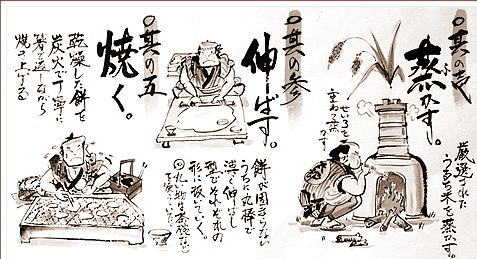 ◎其の壱
蒸かす。
厳選された
うるち米を蒸かす。
せいろを
重ねる蒸
かす
◎其の参
伸ーばす。
餅が固まらない
うちに丸棒で
薄く伸ばし
型でそれぞれの
形に抜いていく。
◎其の五
焼く。
乾燥した餅を
炭火で丁寧に
焼き上げる